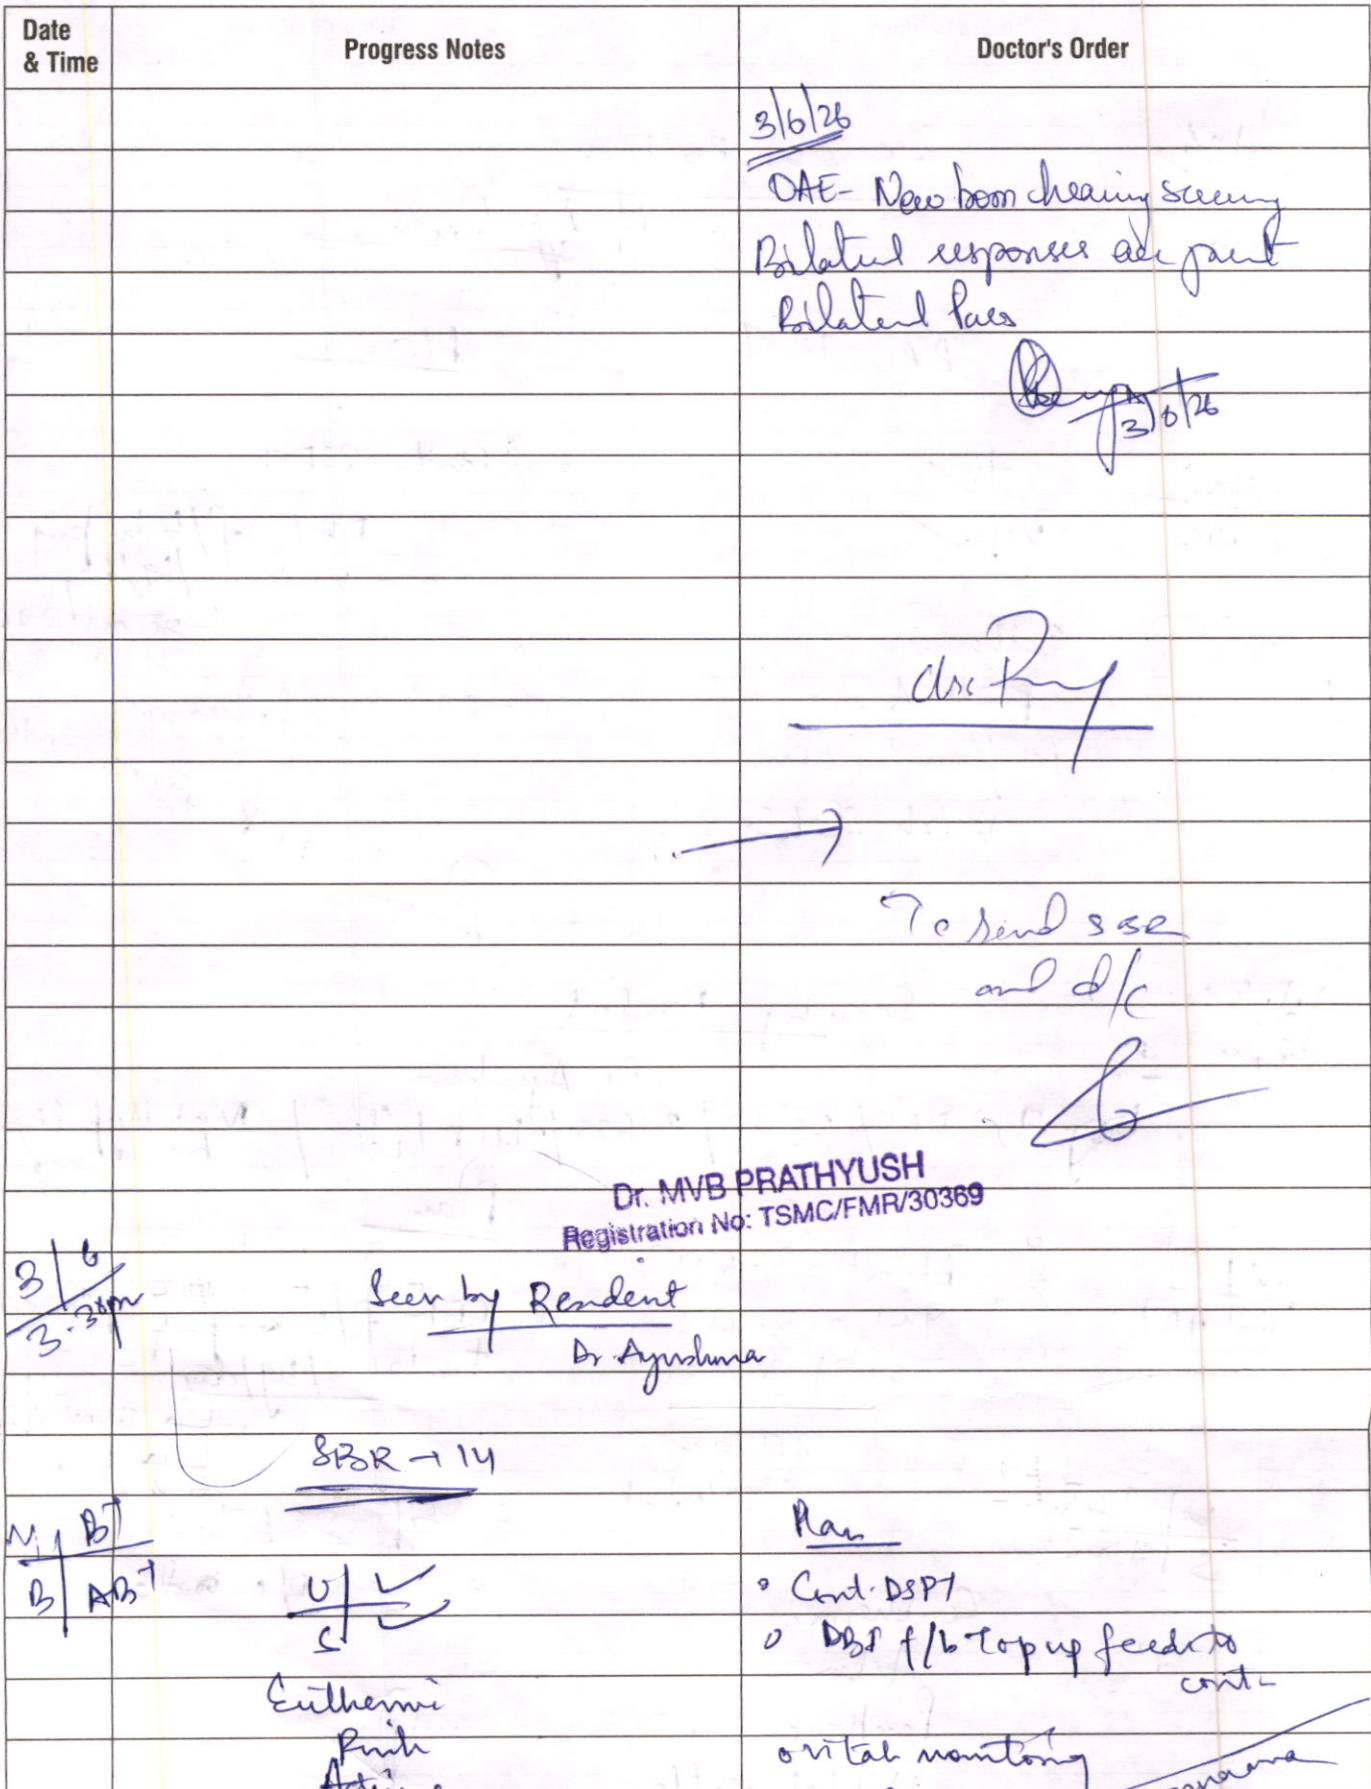 Date & Time
Progress Notes
Doctor's Order
3/6/26
OAE- New born hearing
Bilateral responses are
Bilateral Pass
3/6/26
To send SBR
and d/c
Dr. MVB PRATHYUSH
Registration No: TSMC/FMR/30369
3/6
3.30pm
Seen by Resident
Dr Ayushma
SBR → 14
M B+
B AB+
U ✓
S ✓
Plan
Cont. DSPT
DBF f/b Top up feeds to
cont-
Euthermic
Pink
Active
vitals monitoring